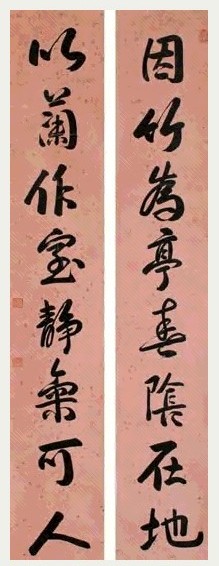 因竹為亭春陰在地
以蘭作室靜氣可人